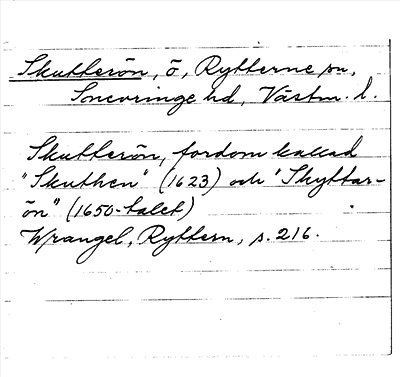 Skutterön, ö, Rytterne sn,
Snevringe hd, Västm. l.
Skutterön, fordom kallad
"Skuthen" (1623) och "Skyttar-
ön" (1650-talet)
Wrangel, Ryttern, s. 216.